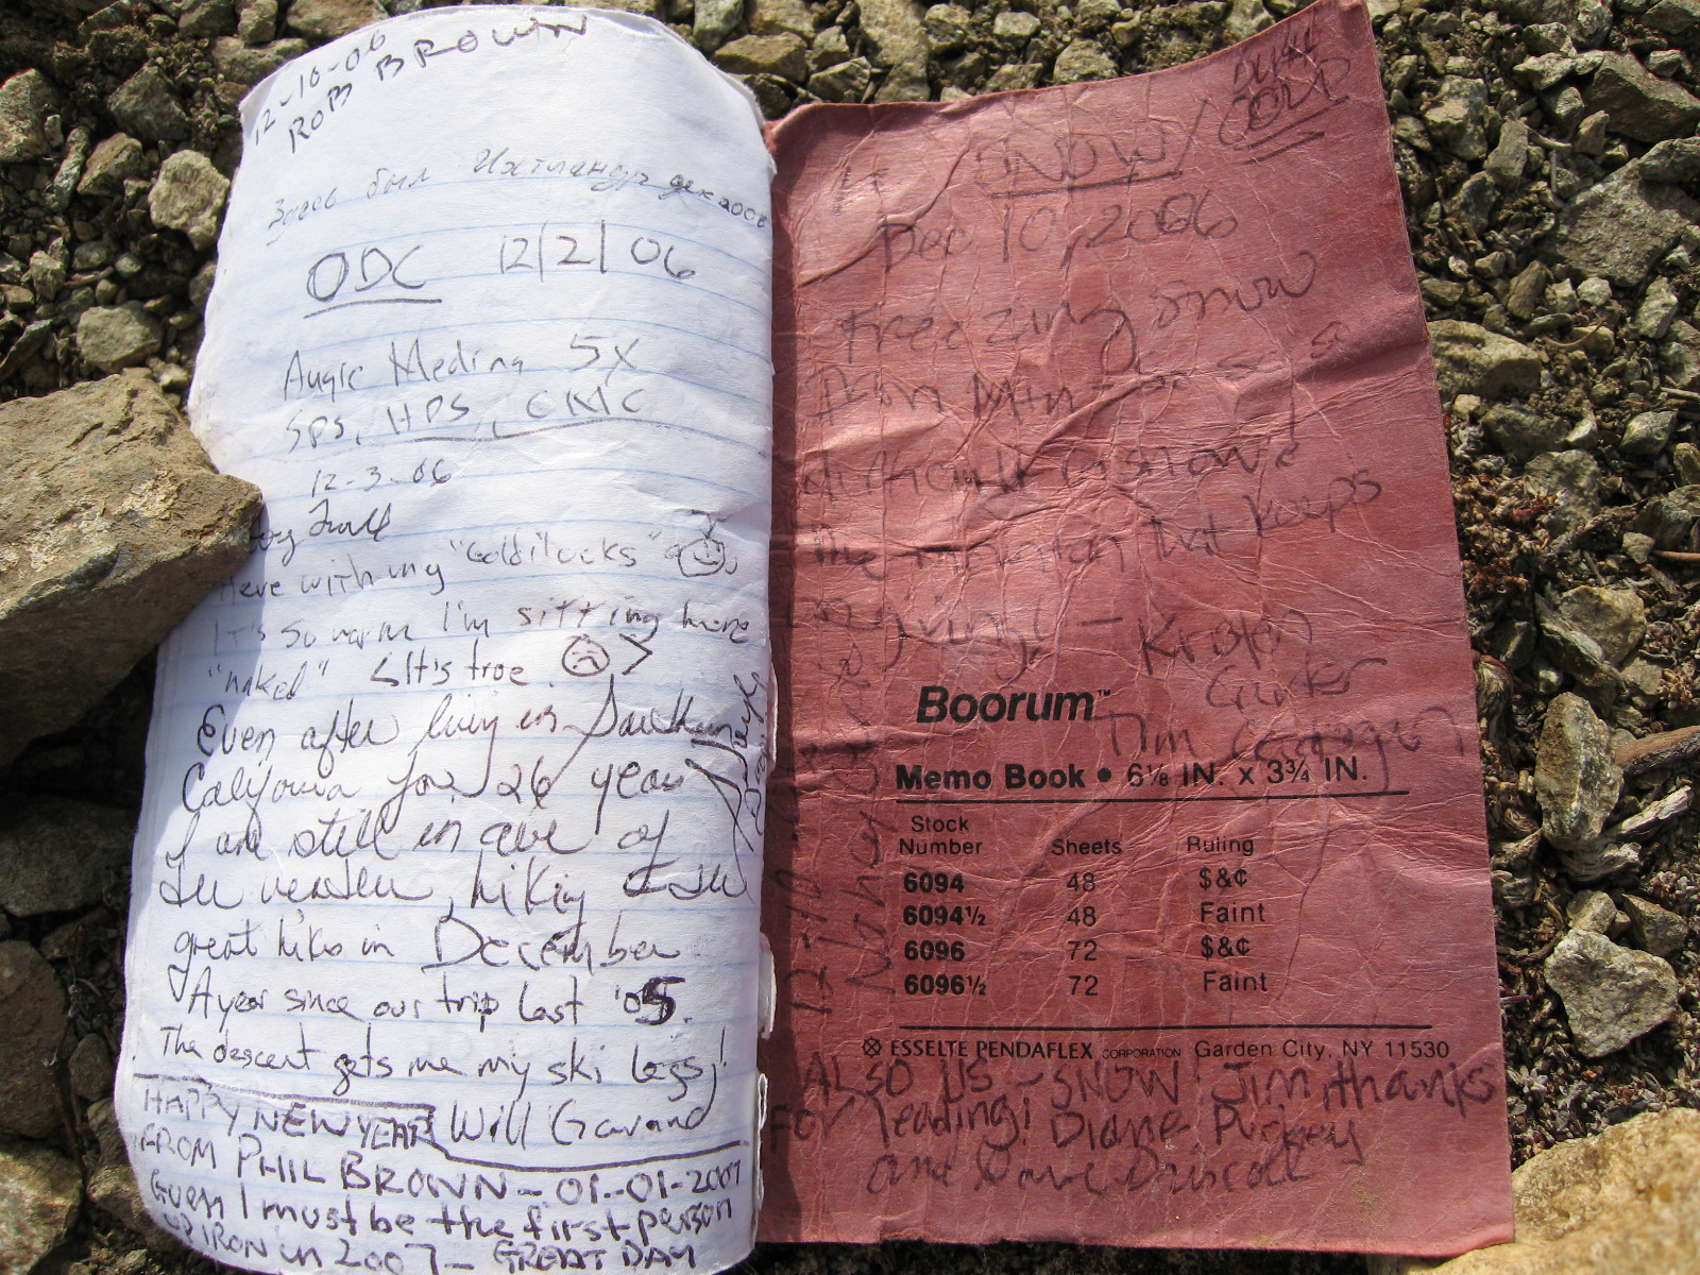 12-10-06
ROB BROWN
Здесь был Ихтиандр дек 2006
ODC 12/2/06
Augie Medina 5X
SPS, HPS, CMC
12-3-06
Here with my "Goldilocks"
It's so warm I'm sitting here
"naked" <It's true >
Even after living in Southern
California for 26 years
I am still in awe of
hiking
great hike in December
A year since our trip last '05.
The descent gets me my ski legs!
Will
HAPPY NEW YEAR
FROM PHIL BROWN - 01-01-2007
Guess I must be the first person
UP IRON in 2007 - GREAT DAY
SNOW / COLD
Dec 10, 2006
Freezing snow
Iron Mtn
the mountain that keeps
giving! - Kristen
Tim
12-10
Nancy
Boorum™
Memo Book • 6⅛ IN. x 3¾ IN.
Stock Number Sheets Ruling
6094 48 $&¢
6094½ 48 Faint
6096 72 $&¢
6096½ 72 Faint
ESSELTE PENDAFLEX CORPORATION Garden City, NY 11530
ALSO US - SNOW! Jim thanks
FOR leading! Diane Purkey
and Dave Driscoll